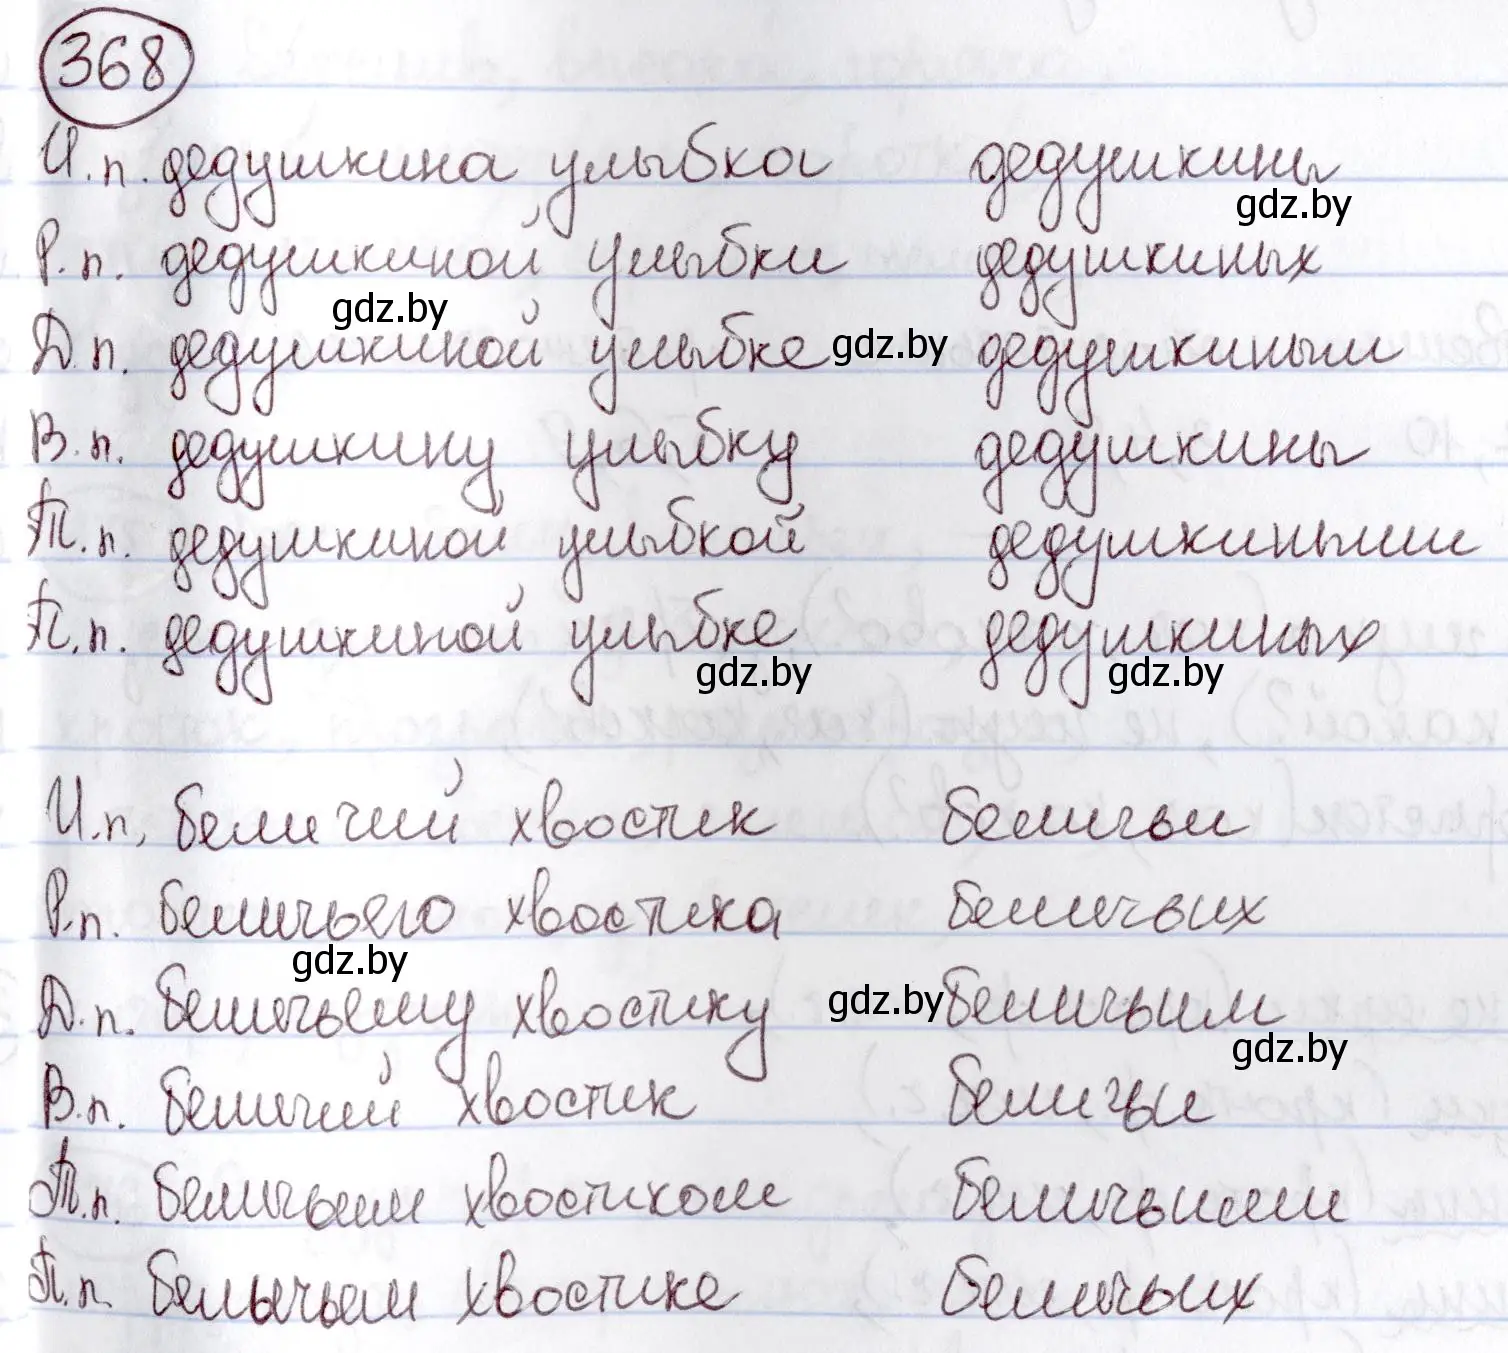 368
И.п. дедушкина улыбка дедушкины
gdz.by
Р.п. дедушкиной улыбки дедушкиных
gdz.by
Д.п. дедушкиной улыбке gdz.by дедушкиным
В.п. дедушкину улыбку дедушкины
Т.п. дедушкиной улыбкой дедушкиными
П.п. дедушкиной улыбке дедушкиных
gdz.by gdz.by
И.п. беличий хвостик беличьи
Р.п. беличьего хвостика беличьих
gdz.by
Д.п. беличьему хвостику gdz.by беличьим
gdz.by
В.п. беличий хвостик беличьи
Т.п. беличьим хвостиком беличьими
П.п. беличьем хвостике беличьих